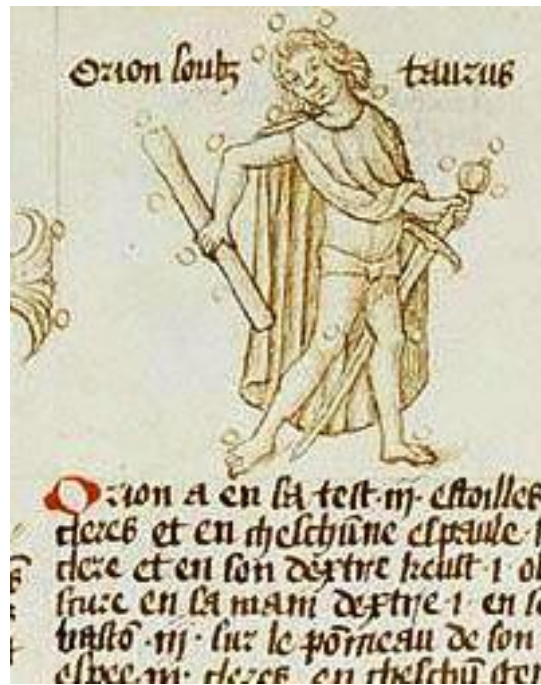 Orion soubz taurus
Orion a en la test · iij · estoilles
cleres et en cheschūne espaule ·
clere et en son dextre keust · 1 · ob
scure en la main dextre · 1 · en so
bastō · iij · sur le pōmeau de son
espee · iij · cleres en cheschū